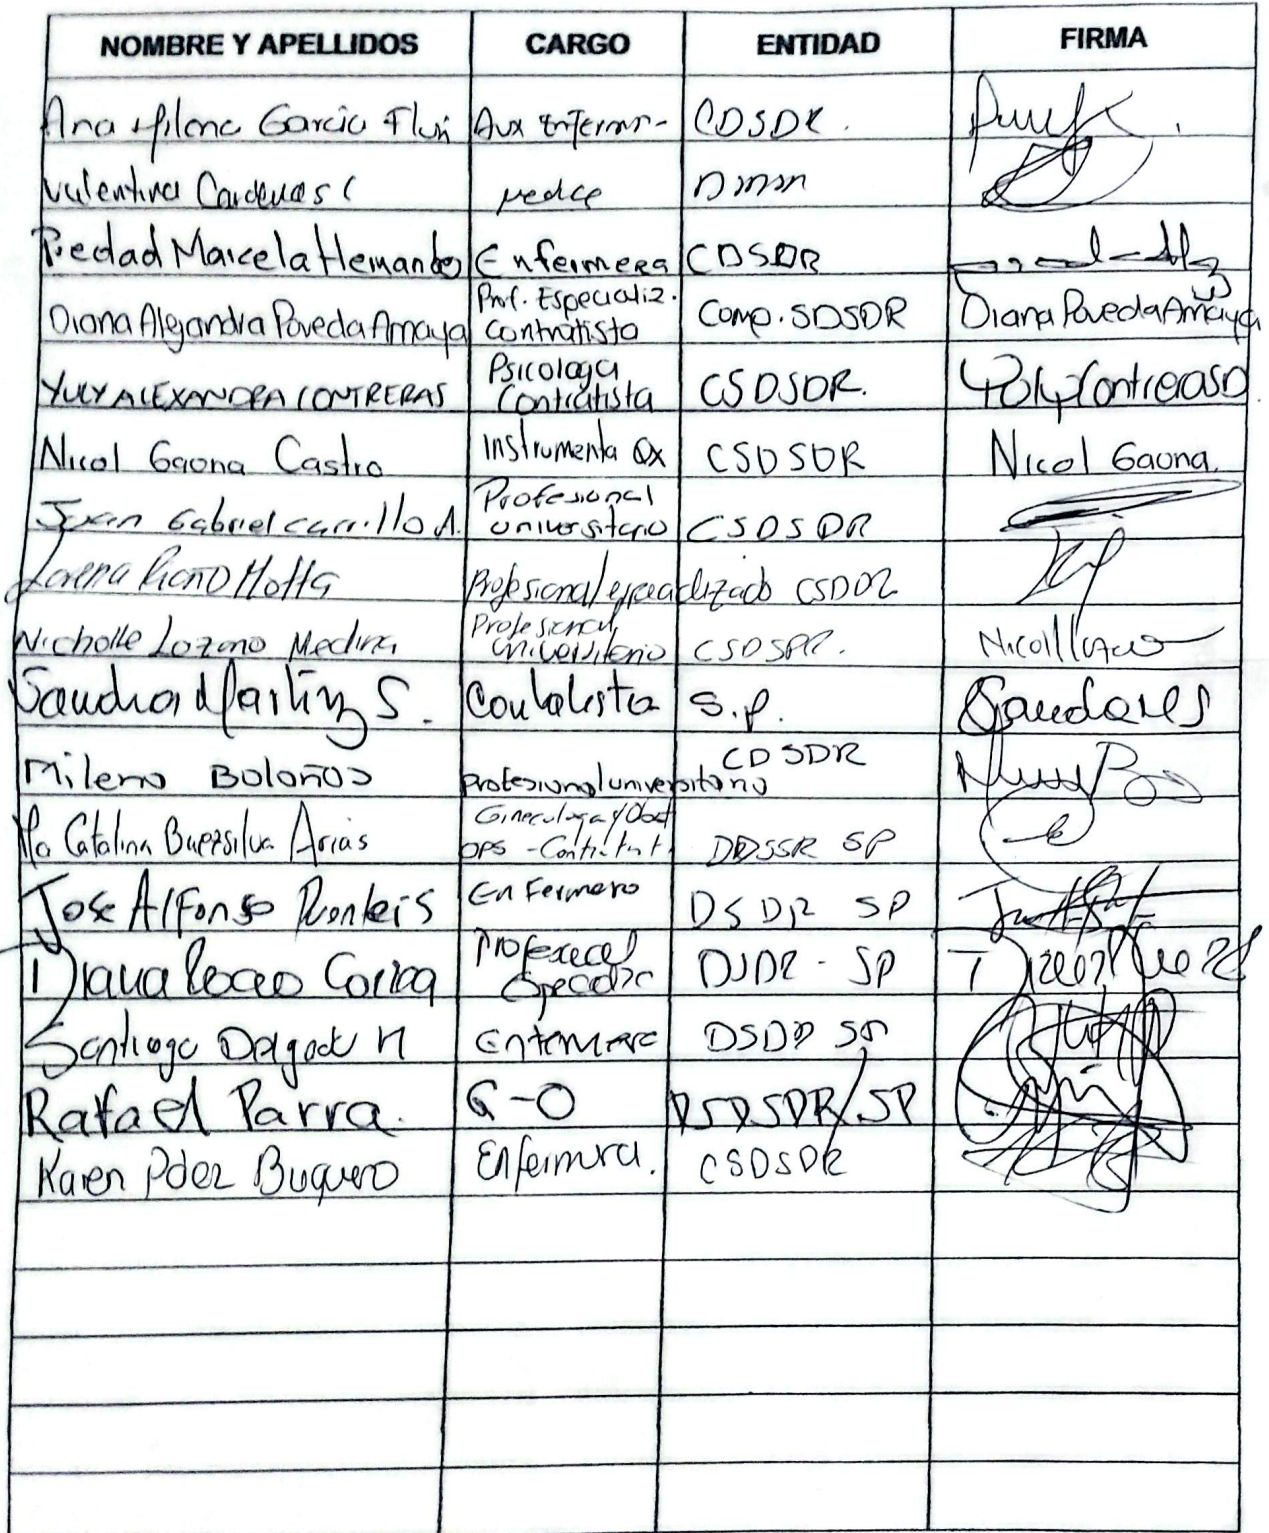 NOMBRE Y APELLIDOS CARGO ENTIDAD FIRMA
Ana Milena Garcia Aux Enferm- CDSDR.
Valentina Cardenas C DMM
Piedad Marcela Hernandez Enfermera CDSDR
Diana Alejandra Poveda Amaya Prof. Especializ. Contratista Comp. SDSDR Diana Poveda Amaya
YULY ALEXANDRA CONTRERAS Psicologa Contratista CSDSDR. Yuly Contreras
Nicol Gaona Castro Instrumenta Qx CSDSDR Nicol Gaona.
Juan Gabriel Carrillo A. Profesional universitario CSDSDR
Lorena Riaño Motta Profesional especializado CSDDR
Nicholle Lozano Medina Profesional universitario CSDSDR.
Sandra Martinez S. Contratista S.P.
Milena Bolaños profesional universitario CDSDR
Ma Catalina Arias Ginecologa y Obst OPS - Contratist DDSSR SP
Jose Alfonso Enfermero DSDR SP
Diana DSDR - SP
Santiago Delgado N Enfermero
Rafael Parra. G-O DSDSDR/SP
Karen Páez Buquero Enfermera. CSDSDR